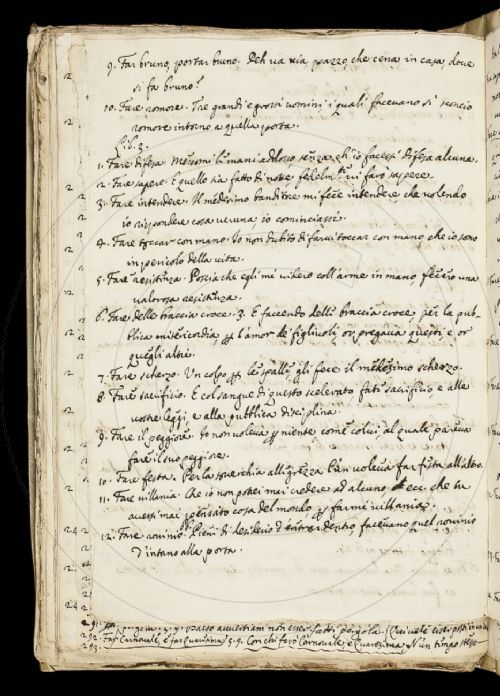 9. Far bruno, portar bruno. Deh va via pazzo, che cena in casa, dove
si fa bruno?
10. Fare romore. Tre grandi e grossi uomini i quali facevano sì sconcio
romore intorno a quella porta.
Lib. 3.
1. Fare difesa. Messomi le mani addosso senza ch'io facessi difesa alcuna.
2. Fare sapere. E quello sia fatto di notte fedelm.te vi farò sapere.
3. Fare intendere. Il medesimo banditore mi fece intendere che volendo
io rispondere cosa veruna, io cominciassi.
4. Fare toccar con mano. Io non dubito di farvi toccar con mano che io sono
in pericolo della vita.
5. Fare resistenza. Poscia che egli mi videro coll'arme in mano, fecero una
valorosa resistenza.
6. Fare delle braccia croce. 3. E facendo delle braccia croce, per la pub-
blica misericordia, p l'amor de figliuoli, or pregava questi, e or
quegli altri.
7. Fare scherzo. Un colpo p le spalle gli fece il medesimo scherzo.
8. Fare sacrificio. E col sangue di questo scelerato fate sacrificio e alle
vostre leggi e alla pubblica disciplina.
9. Fare il peggiore. Io non voleva p niente come colui al quale pareva
fare il suo peggiore.
10. Fare festa. Per la soverchia allegrezza l'un voleva far festa all'altro.
11. Fare villania. Che io non potei mai credere ad alcuno, ecc. che tu
avessi mai pensato cosa del mondo p farmi villania.
12. Fare nimico. Pieni di desiderio d'entrar dentro facevano quel
D'intorno alla porta.
291. passo avvertiam non esser fatti pergola.
292. Far Carnovale, e far Quaresima 3. 9. Con chi farò Carnovale e Quaresima. N'un tempo stesso
293.